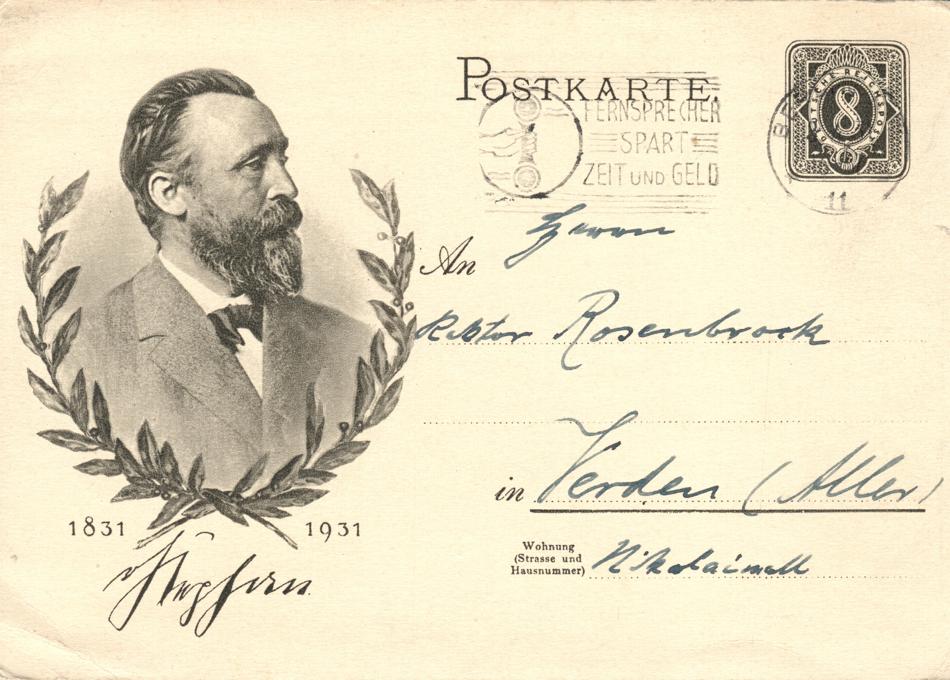 POSTKARTE.
FERNSPRECHER
SPART
ZEIT UND GELD
DEUTSCHE REICHSPOST
8
11
An Herrn
Rektor Rosenbrock
in Verden (Aller)
Wohnung
(Strasse und
Hausnummer) Nikolaiwall
1831 1931
Stephan